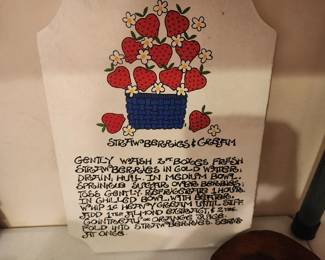 STRAWBERRIES & CREAM
GENTLY WASH 2 BOXES FRESH
STRAWBERRIES IN COLD WATER,
DRAIN, HULL. IN MEDIUM BOWL,
SPRINKLE SUGAR OVER BERRIES,
TOSS GENTLY. REFRIGERATE 1 HOUR.
IN CHILLED BOWL, WITH BEATER,
WHIP 1C HEAVY CREAM UNTIL STIFF.
ADD ALMOND EXTRACT & 2 TBS
COINTREAU OR ORANGE JUICE.
FOLD INTO STRAWBERRIES. SERVE
AT ONCE.